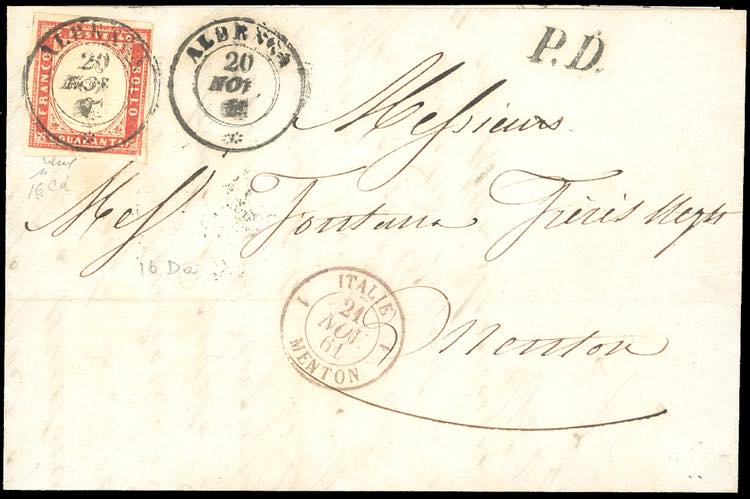 ALBENGA
20
NOV
FRANCO
POSTE
BOLLO
QUARANTA
ALBENGA
20
NOV
*
P.D.
Messieurs
Mess Fontana Frères Negts
Menton
16 Cd
16 Da
ITALIE
21
NOV.
61
MENTON
1 1